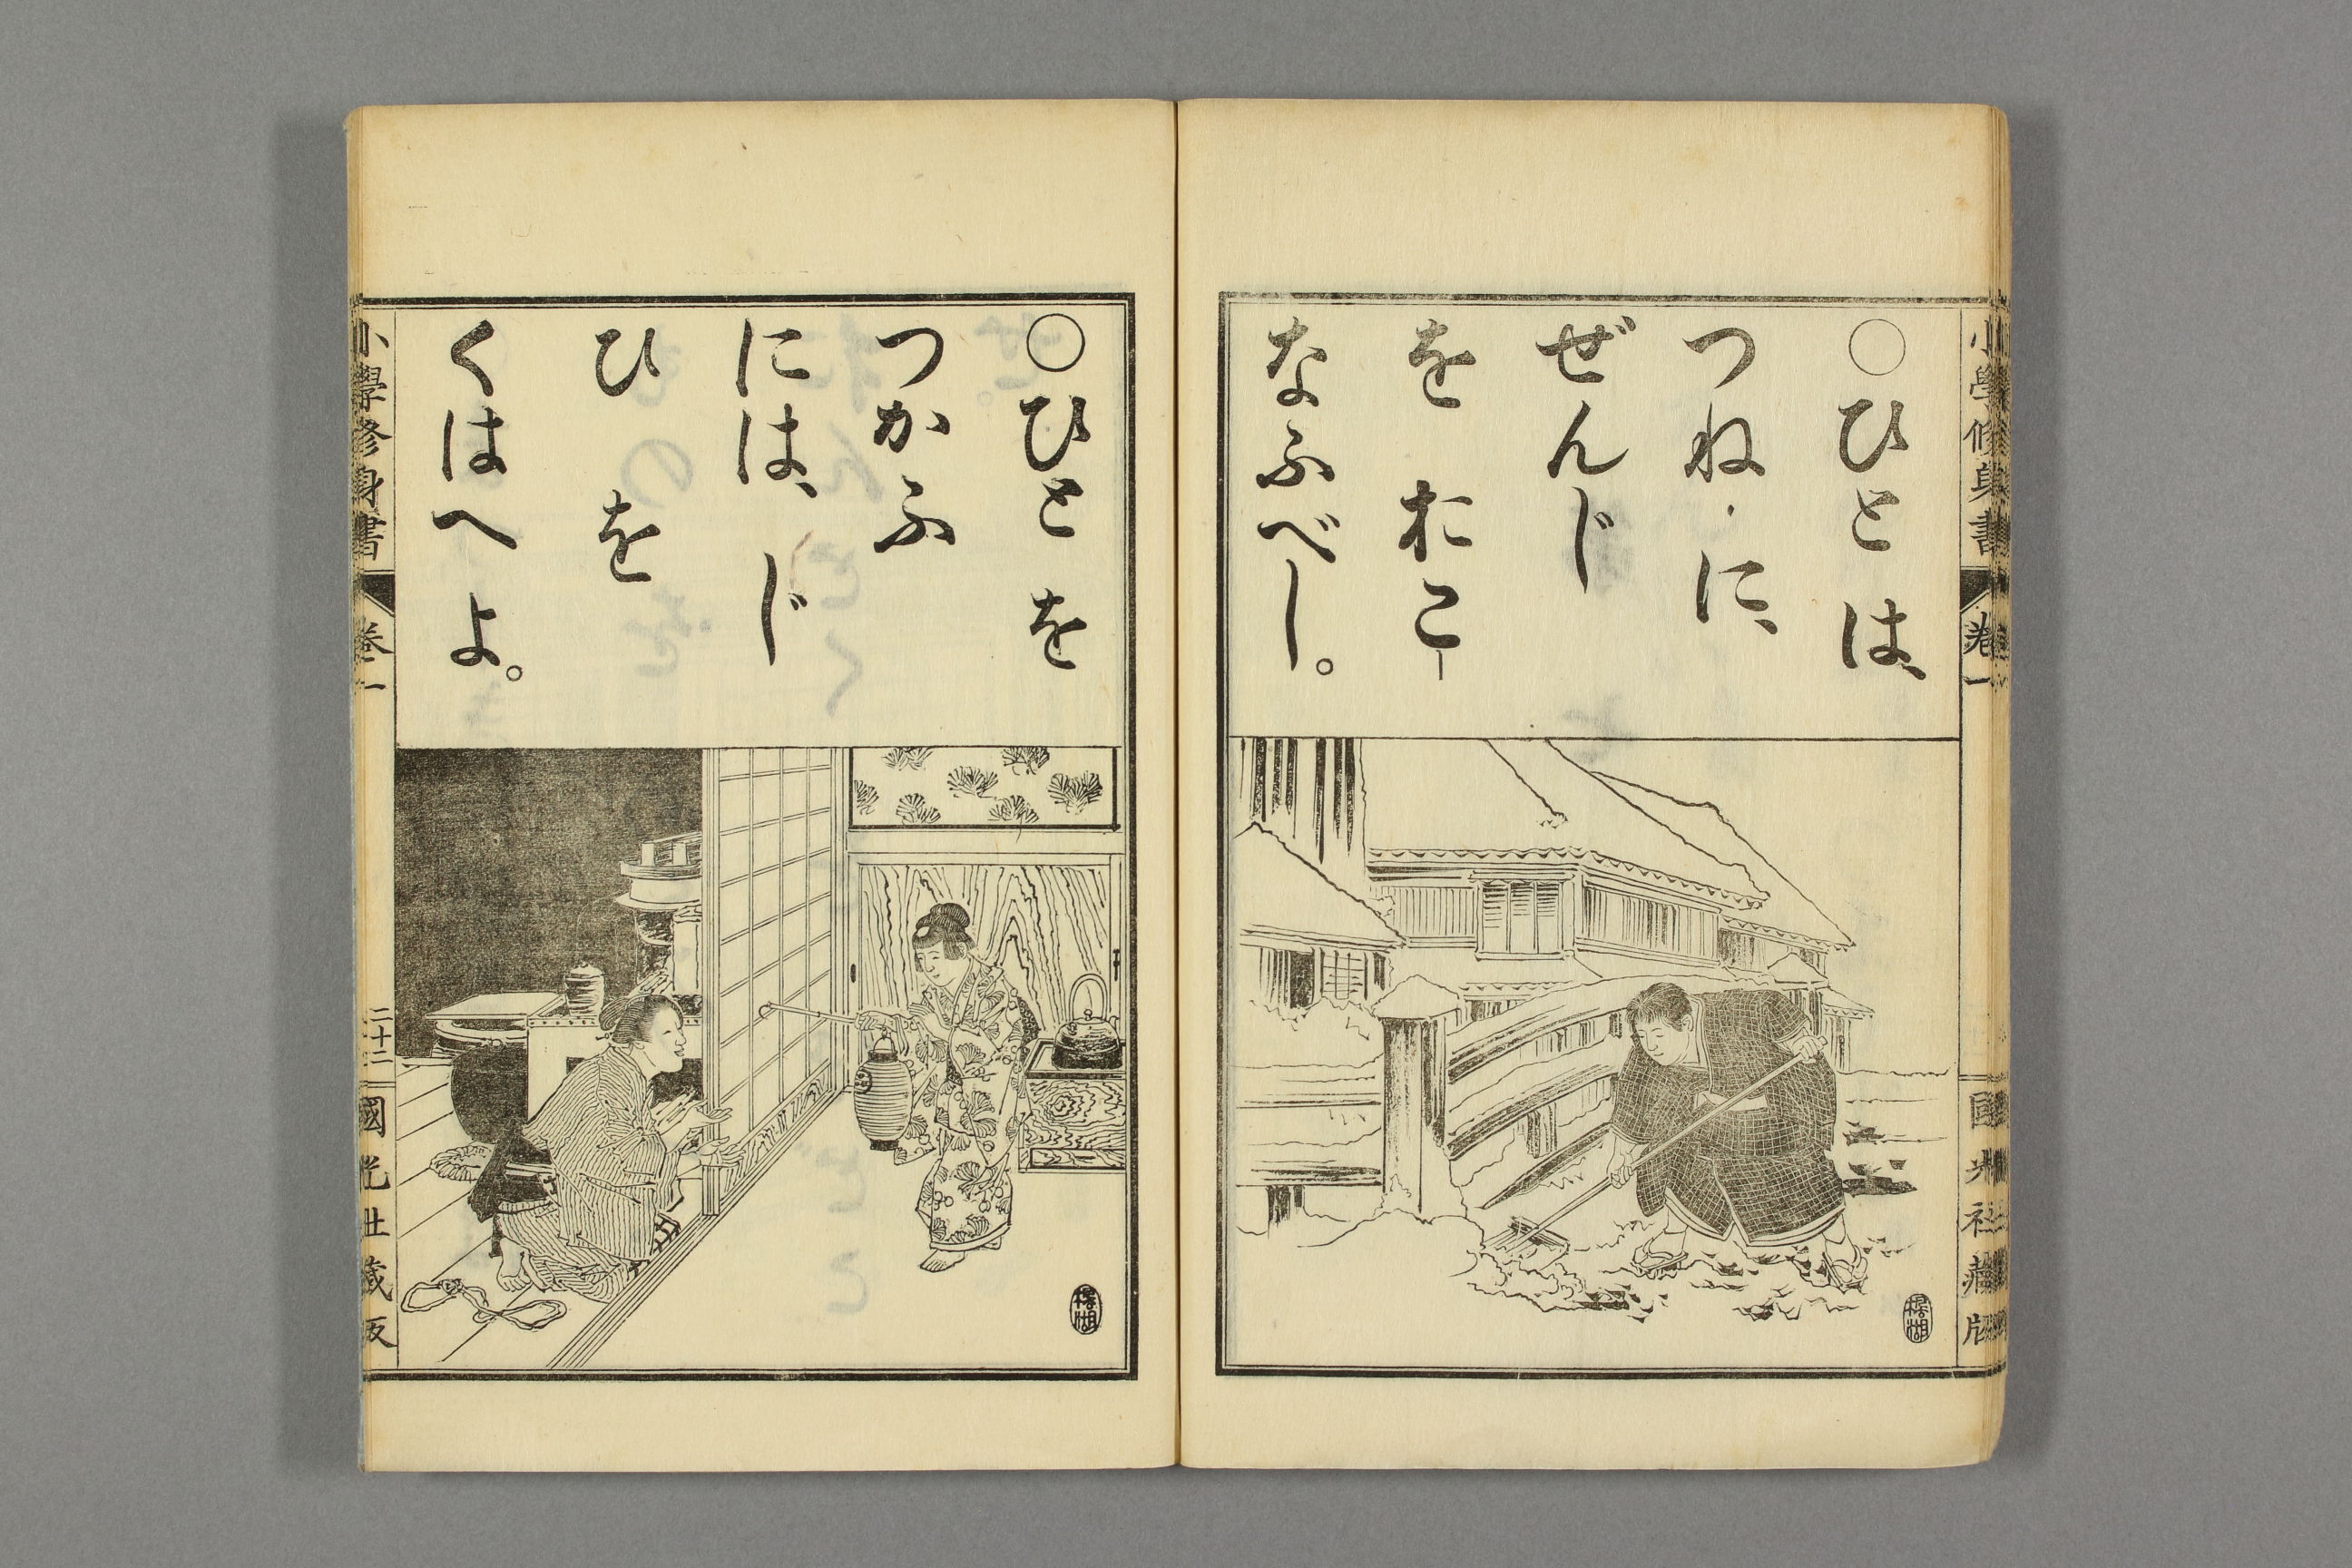 小學修身書
卷一
國光社藏版
○ひとは、
つねに、
ぜんじ
をおこ
なふべし。
○ひとを
つかふ
には、じ
ひを
くはへよ。
小學修身書
卷一
二十二
國光社藏版